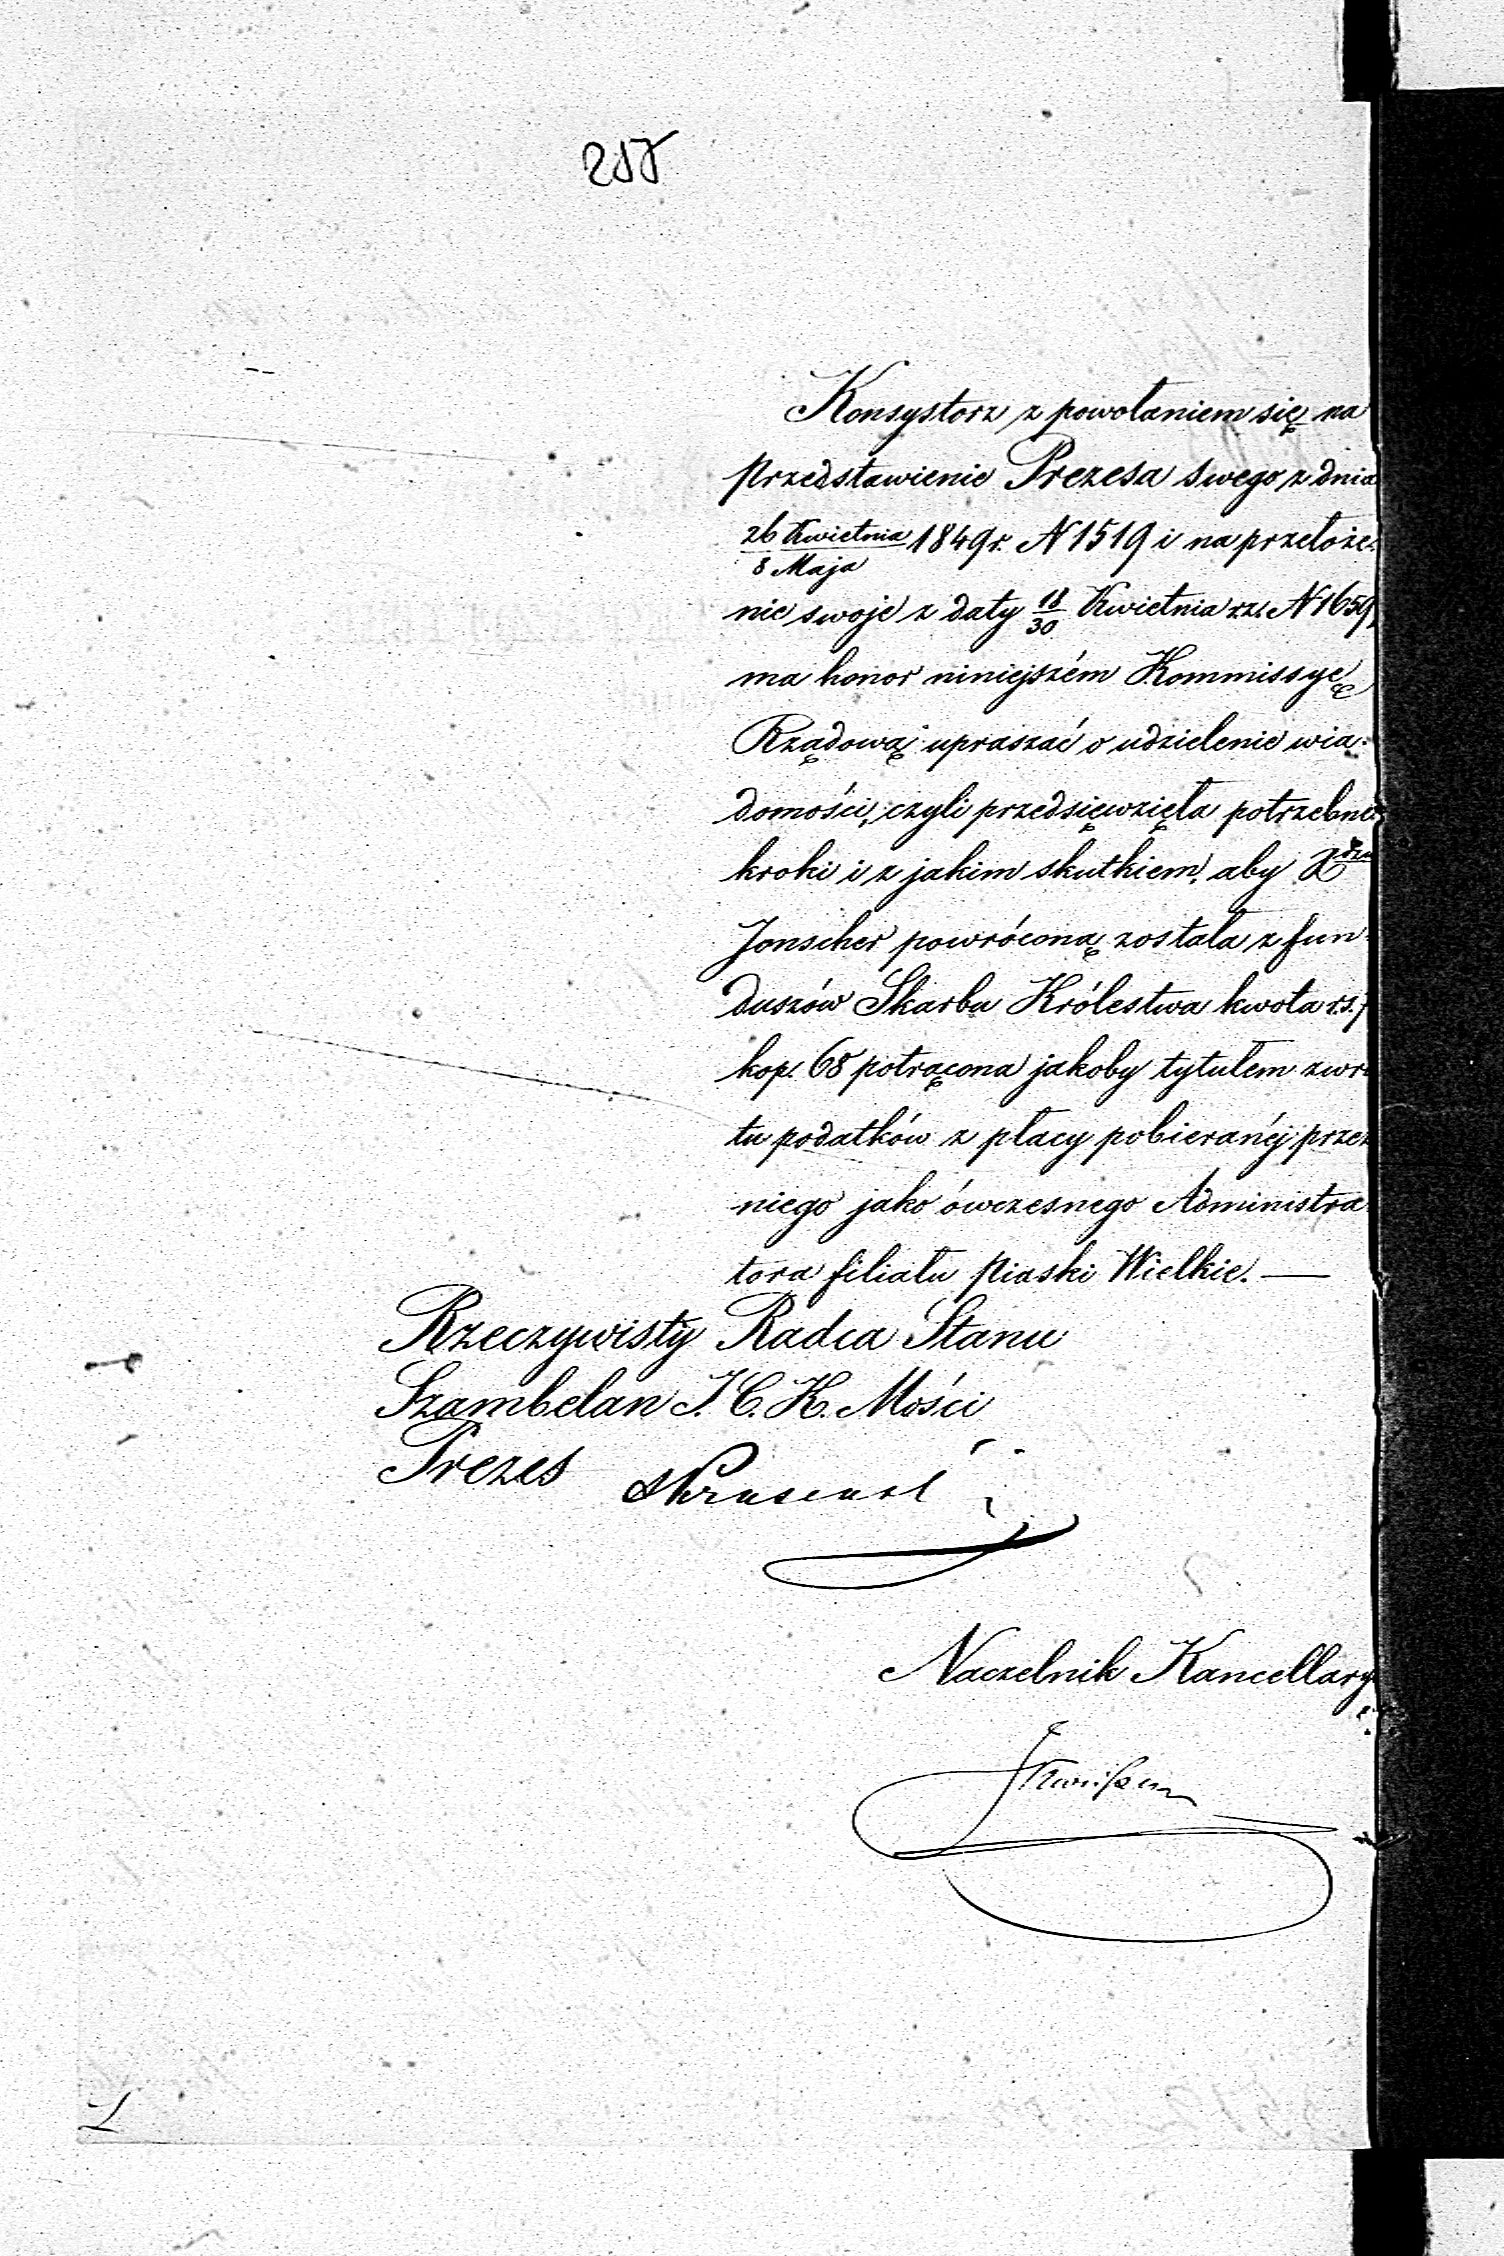 257
Konsystorz z powołaniem się na
przedstawienie Prezesa swego z dnia
26 Kwietnia/8 Maja 1849 r. N 1519 i na przełoże-
nie swoje z daty 18/30 Kwietnia r.z. N 1659,
ma honor niniejszém Kommissyę
Rządową upraszać o udzielenie wia-
domości, czyli przedsięwzięła potrzebne
kroki i z jakim skutkiem, aby Xdzu
Jonscher powróconą została z fun-
duszów Skarbu Królestwa kwota r.s.
kop. 68 potrącona jakoby tytułem zwro
tu podatków z płacy pobieranéj przez
niego jako ówczesnego Administra
tora filiału Piaski Wielkie. —
Rzeczywisty Radca Stanu
Szambelan J. C. K. Mości
Prezes
Naczelnik Kancellaryi
L